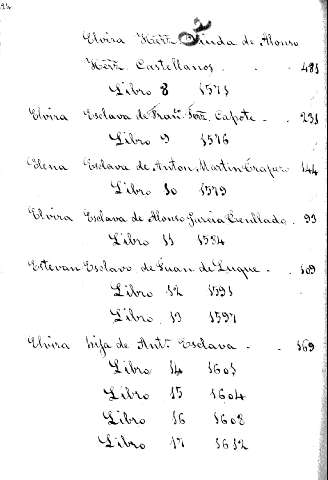 24
2
Elvira Hern.z Viuda de Alonso
Hern.z Castellanos . . . 481
Libro 8 1571
Elvira Esclava de Fran.co Capote . 231
Libro 9 1576
Elena Esclava de Anton Martin Trapero 144
Libro 10 1579
Elvira Esclava de Alonso Garcia . 93
Libro 11 1584
Estevan Esclavo de Juan de Luque . 109
Libro 12 1591
Libro 13 1597
Elvira hija de Ant.a Esclava . . 169
Libro 14 1601
Libro 15 1604
Libro 16 1608
Libro 17 1612